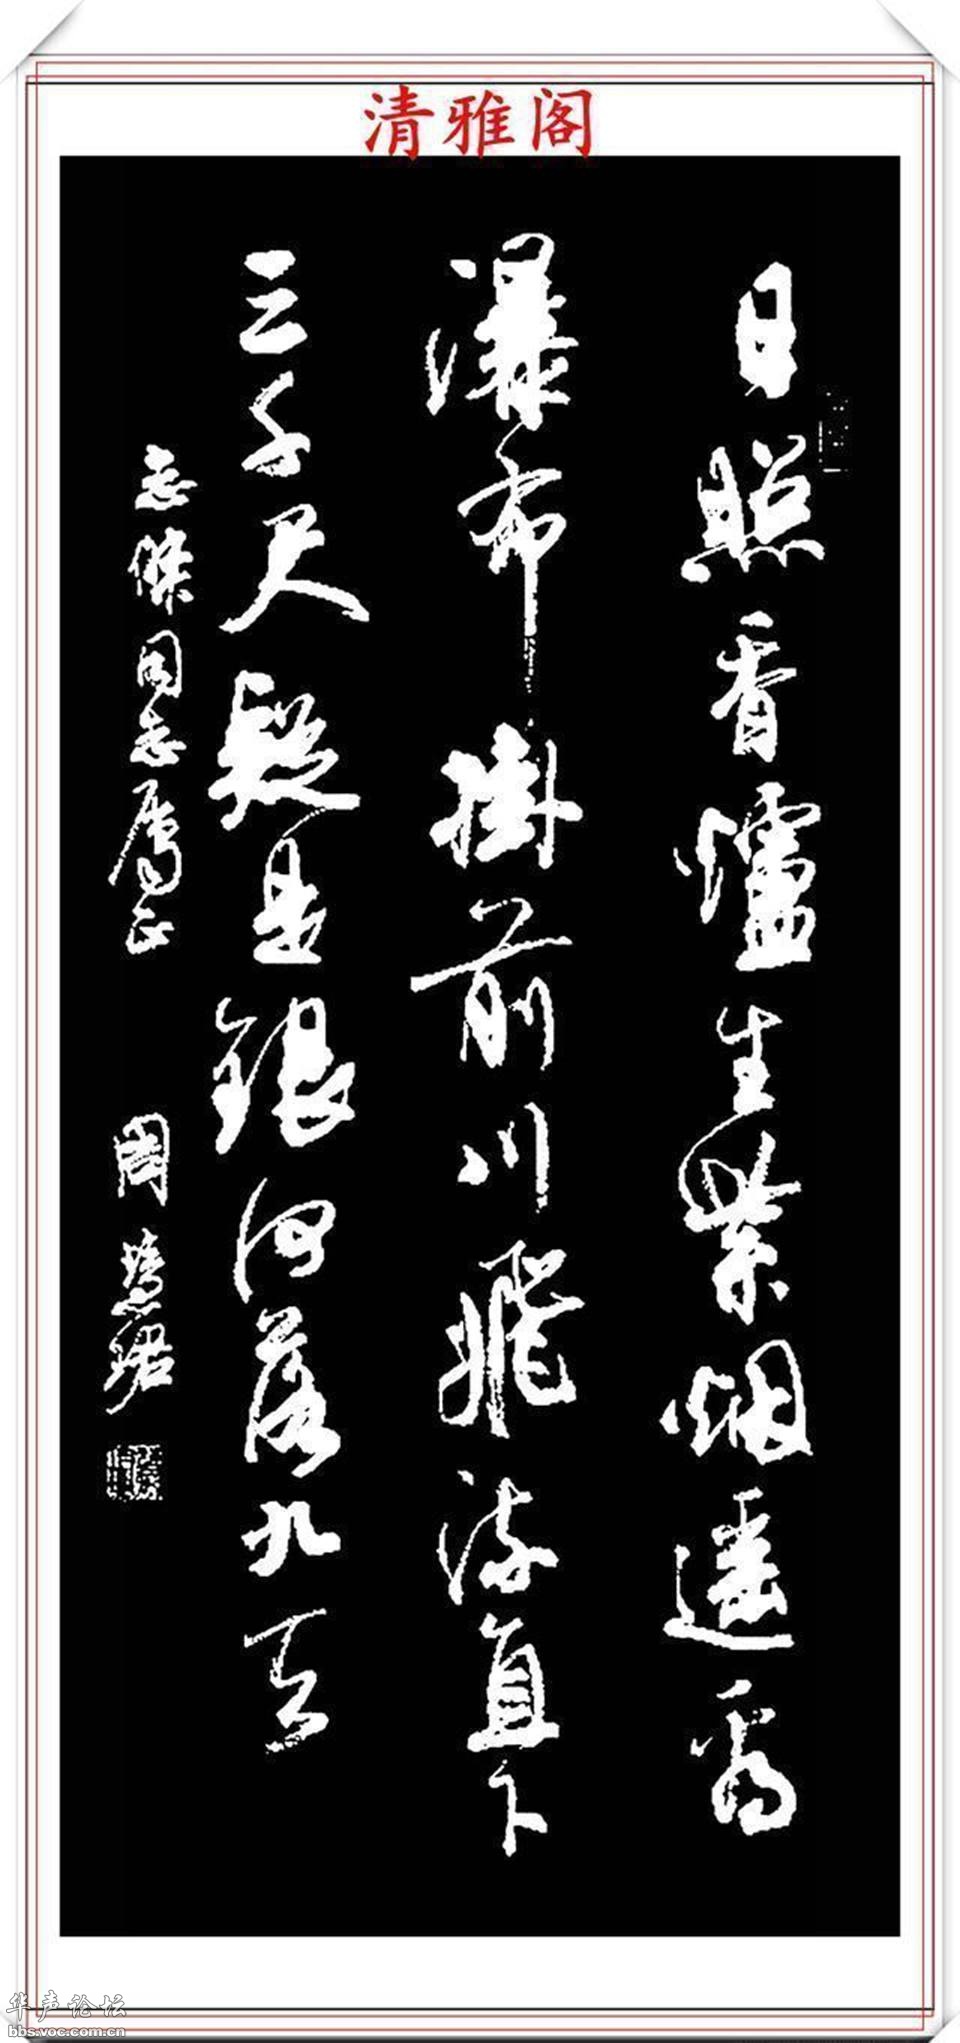 清雅阁
日照香爐生紫烟遥看
瀑布掛前川飛流直下
三千尺疑是銀河落九天
志傑同志属正
周慧珺
华声论坛
bbs.voc.com.cn